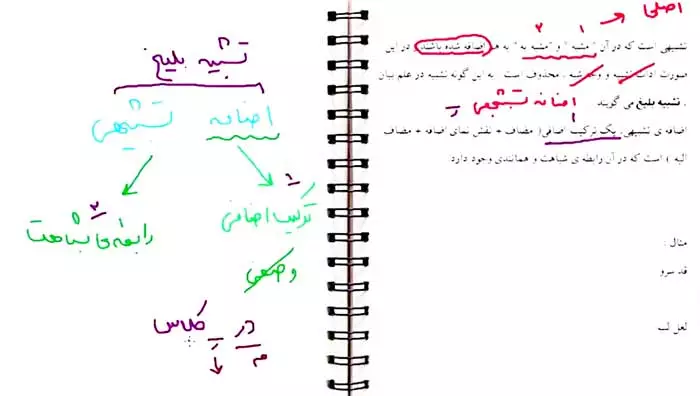 اصلی
۱ ۲
تشبیهی است که در آن "مشبه" و "مشبه به" به هم اضافه شده باشند. در این
صورت ادات تشبیه و وجه شبه ، محذوف است . به این گونه تشبیه در علم بیان
، تشبیه بلیغ می گویند اضافه تشبیهی
اضافه ی تشبیهی، یک ترکیب اضافی( مضاف + نقش نمای اضافه + مضاف
الیه ) است که در آن رابطه ی شباهت و همانندی وجود دارد
مثال :
قد سرو
لعل لب
تشبیه بلیغ
اضافه تشبیهی
۱
ترکیب اضافی
۲
رابطه شباهت
وصفی
درِ کلاس
م